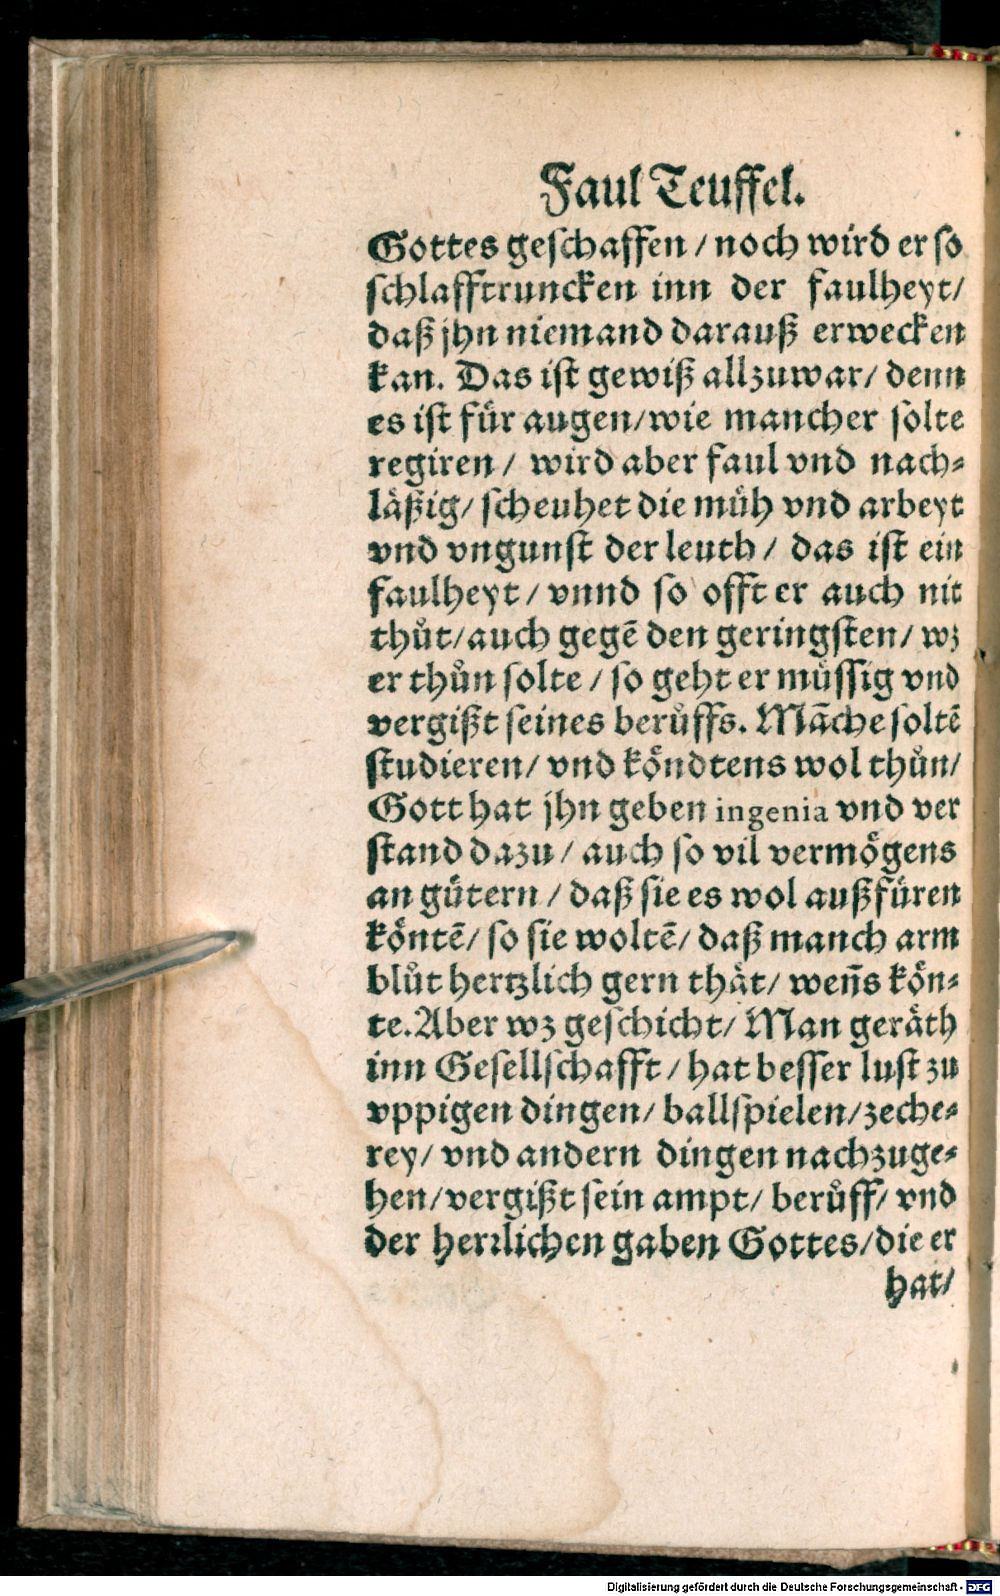 Faul Teuffel.
Gottes geschaffen / noch wird er so
schlafftruncken inn der faulheyt/
daß jhn niemand darauß erwecken
kan. Das ist gewiß allzuwar/ denn
es ist für augen/wie mancher solte
regiren / wird aber faul vnd nach⸗
läßig/ scheuhet die müh vnd arbeyt
vnd vngunst der leuth / das ist ein
faulheyt / vnnd so offt er auch nit
thůt/auch gegẽ den geringsten/ wz
er thůn solte / so geht er müssig vnd
vergißt seines berůffs. Mãche soltẽ
studieren/ vnd köndtens wol thůn/
Gott hat jhn geben ingenia vnd ver
stand dazu / auch so vil vermögens
an gütern / daß sie es wol außfüren
köntẽ/ so sie woltẽ/ daß manch arm
blůt hertzlich gern thät/ weñs kön⸗
te. Aber wz geschicht/ Man geräth
inn Gesellschafft / hat besser lust zu
vppigen dingen/ ballspielen/zeche⸗
rey/ vnd andern dingen nachzuge⸗
hen/vergißt sein ampt/ berůff/ vnd
der herꝛlichen gaben Gottes/die er
hat/
Digitalisierung gefördert durch die Deutsche Forschungsgemeinschaft - DFG